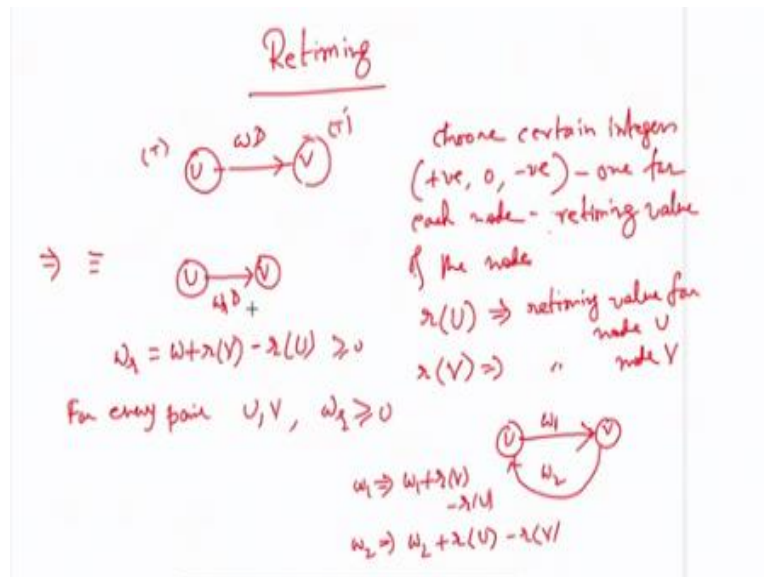 Retiming
(T) U ωD V (T')
⇒ ≡ U ω₂D V
ω₂ = ω + r(V) - r(U) ≥ 0
For every pair U, V, ω₂ ≥ 0
choose certain integers
(+ve, 0, -ve) - one for
each node - retiming value
of the node
r(U) ⇒ retiming value for
node U
r(V) ⇒ " node V
U ω₁ V
ω₂
ω₁ ⇒ ω₁ + r(V)
- r(U)
ω₂ ⇒ ω₂ + r(U) - r(V)